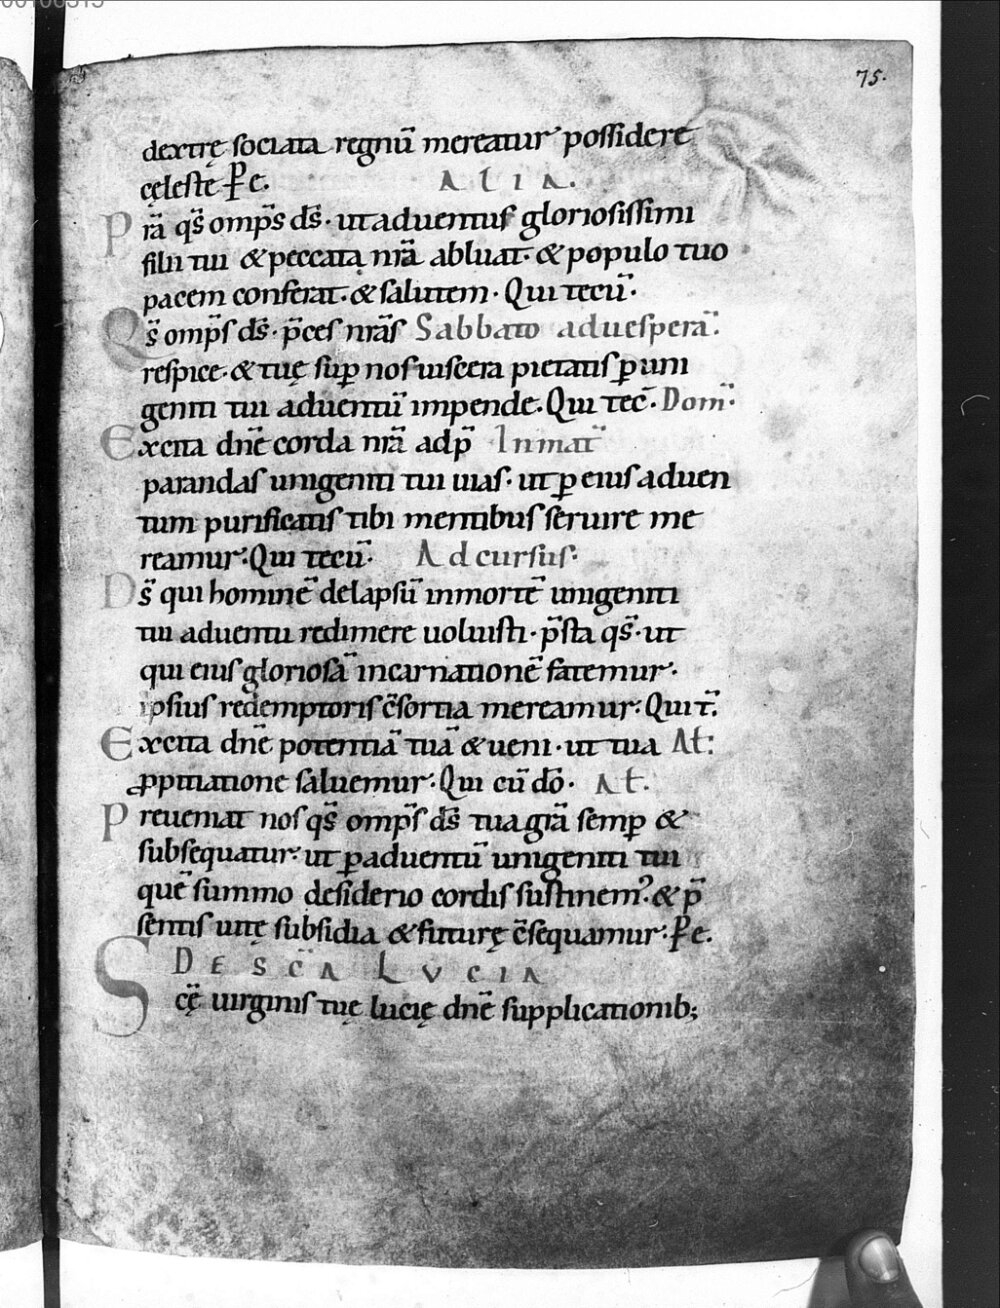 75.
dextrę sociata regnū mereatur possidere
cęleste P̄ e. ALIA.
Prā qs̄ omp̄s ds̄. ut aduentus gloriosissimi
filii tui & peccata nrā abluat. & populo tuo
pacem conferat. & salutem. Qui tecū.
Qs̄ omp̄s ds̄. p̄ces nrās Sabbato aduesperā.
respice. & tuę sup nos uiscera pietatis ꝑ uni
geniti tui aduentū impende. Qui tec̄. Dom̄.
Excita dn̄e corda nrā adp̄ In mat̄
parandas unigeniti tui uias. ut ꝑ eius aduen
tum purificatis tibi mentibus seruire me
reamur. Qui tecū. Ad cursus.
Ds̄ qui hominē delapsū in mortē unigeniti
tui aduentu redimere uoluisti. p̄sta qs̄. ut
qui eius gloriosā incarnationē fatemur.
ipsius redemptoris c̄sortia mereamur. Qui t̄.
Excita dn̄e potentiā tuā & ueni. ut tua Al:
ꝓpitiatione saluemur. Qui cū dō. Al.
Preueniat nos qs̄ omp̄s ds̄ tua grā semp &
subsequatur. ut ꝑ aduentū unigeniti tui
quē summo desiderio cordis sustinem᷒. & p̄
sentis uitę subsidia & futurę c̄sequamur. P̄ e.
DE SC̄A LVCIA
Scę̄ uirginis tuę lucię dn̄e supplicationib;